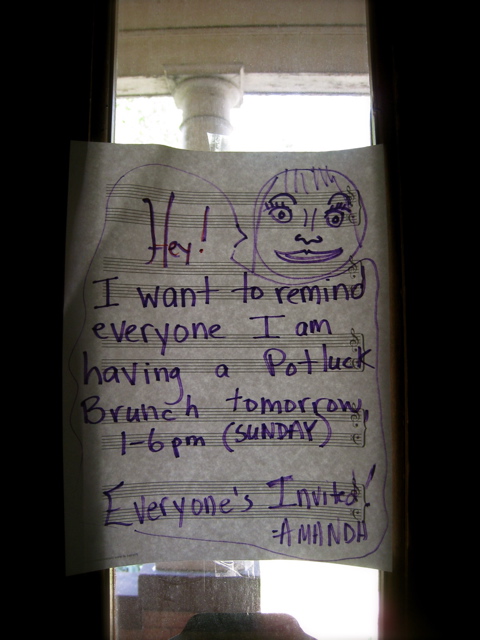 Hey!
I want to remind
everyone I am
having a Potluck
Brunch tomorrow,
1-6pm (SUNDAY)
Everyone's Invited!
-AMANDA